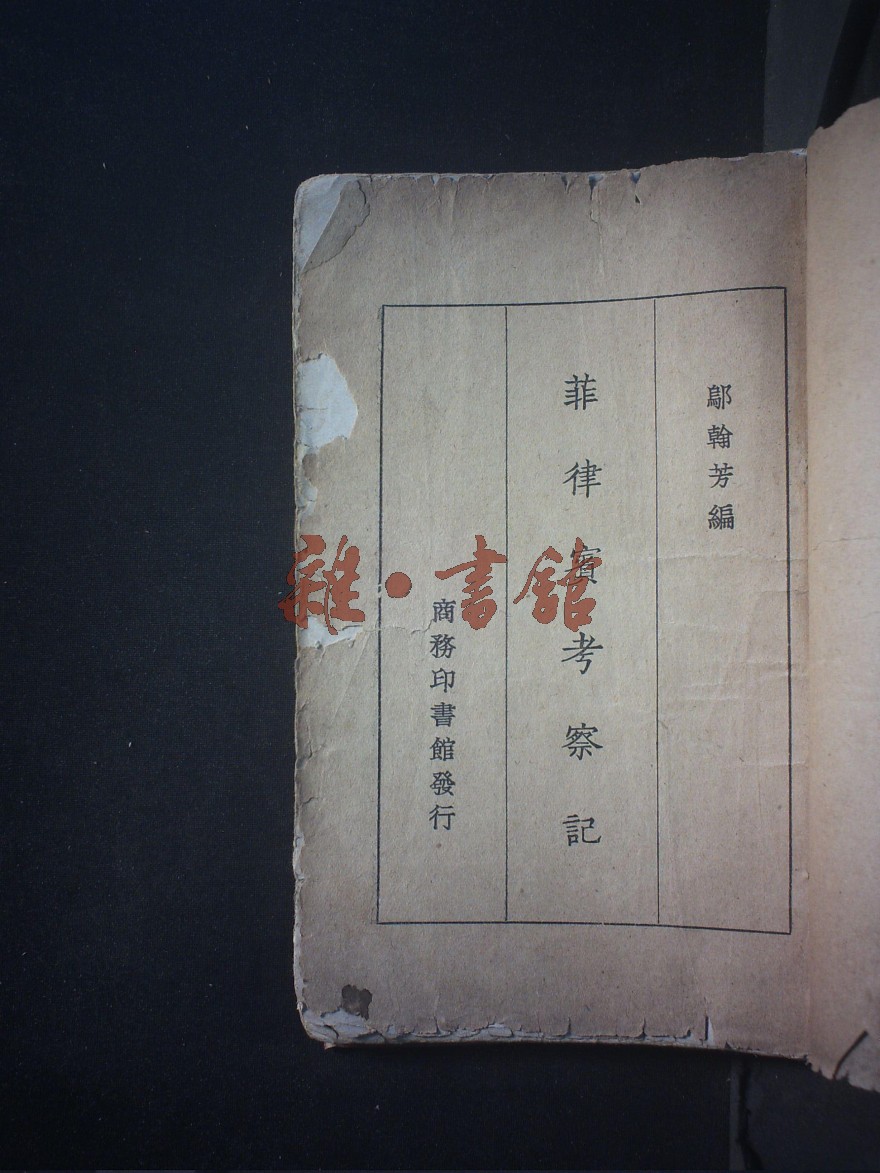 鄔翰芳編
菲律賓考察記
商務印書館發行
雜·書館